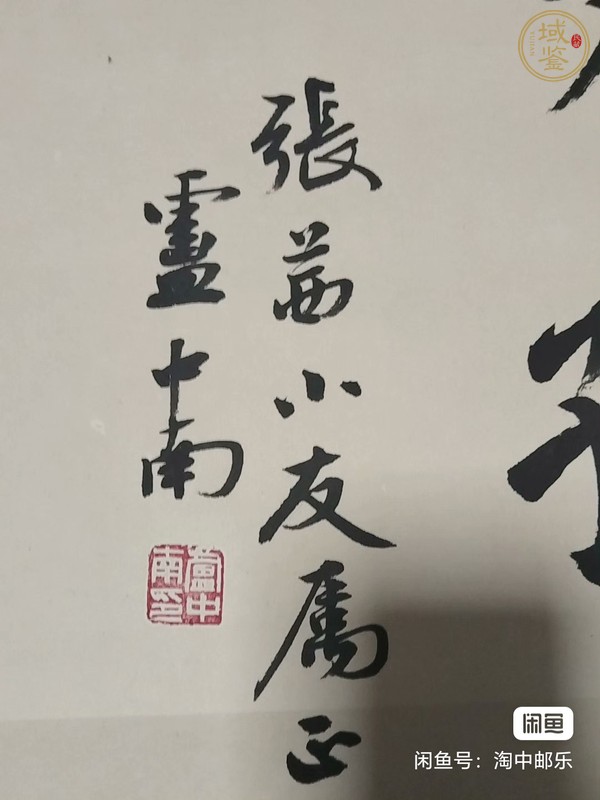 張茜小友属正
盧中南
盧中南印
域鉴
闲鱼
闲鱼号：淘中邮乐